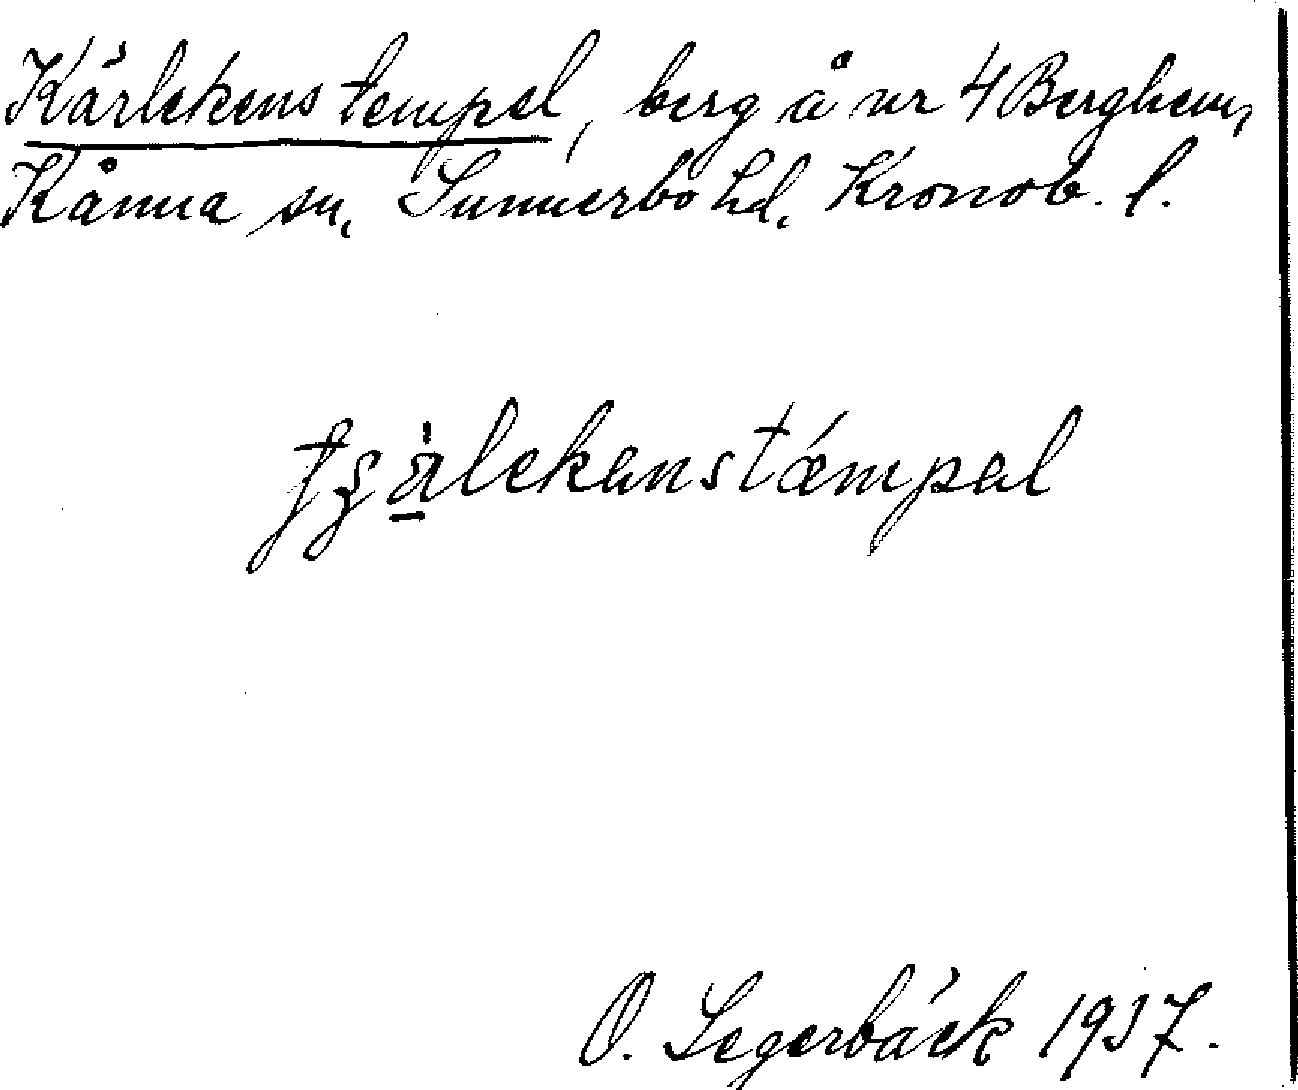 Kärlekens tempel, berg å nr 4 Berghem,
Kånna sn, Sunnerbo hd, Kronob. l.
tʂälekenstǽmpel
O. Segerbäck 1937.